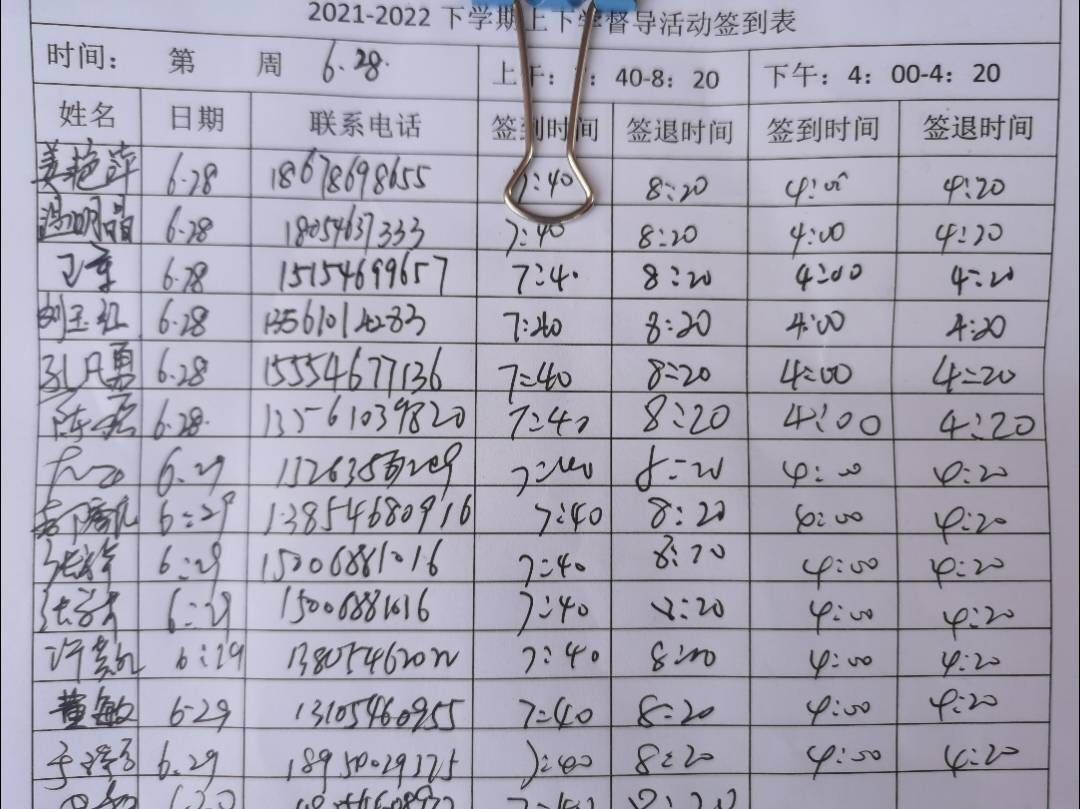 2021-2022 下学期上下学督导活动签到表
时间： 第 周 6.28. 上午： ：40-8：20 下午：4：00-4：20
姓名 日期 联系电话 签到时间 签退时间 签到时间 签退时间
姜艳萍 6.28 18678698655 7:40 8:20 4:00 4:20
冯明晶 6.28 18054637333 7:40 8:20 4:00 4:20
6.28 15154699657 7:40 8:20 4:00 4:20
刘玉红 6.28 13561014283 7:40 8:20 4:00 4:20
6.28 15554677136 7:40 8:20 4:00 4:20
陈磊 6.28. 13561039820 7:40 8:20 4:00 4:20
6.29 7:40 8:20 4:00 4:20
6:29 13854680916 7:40 8:20 4:00 4:20
6:29 15006881016 7:40 8:20 4:00 4:20
6:29 15006881016 7:40 8:20 4:00 4:20
6:29 7:40 8:20 4:00 4:20
黄敏 6.29 13105460955 7:40 8:20 4:00 4:20
6.29 7:40 8:20 4:00 4:20